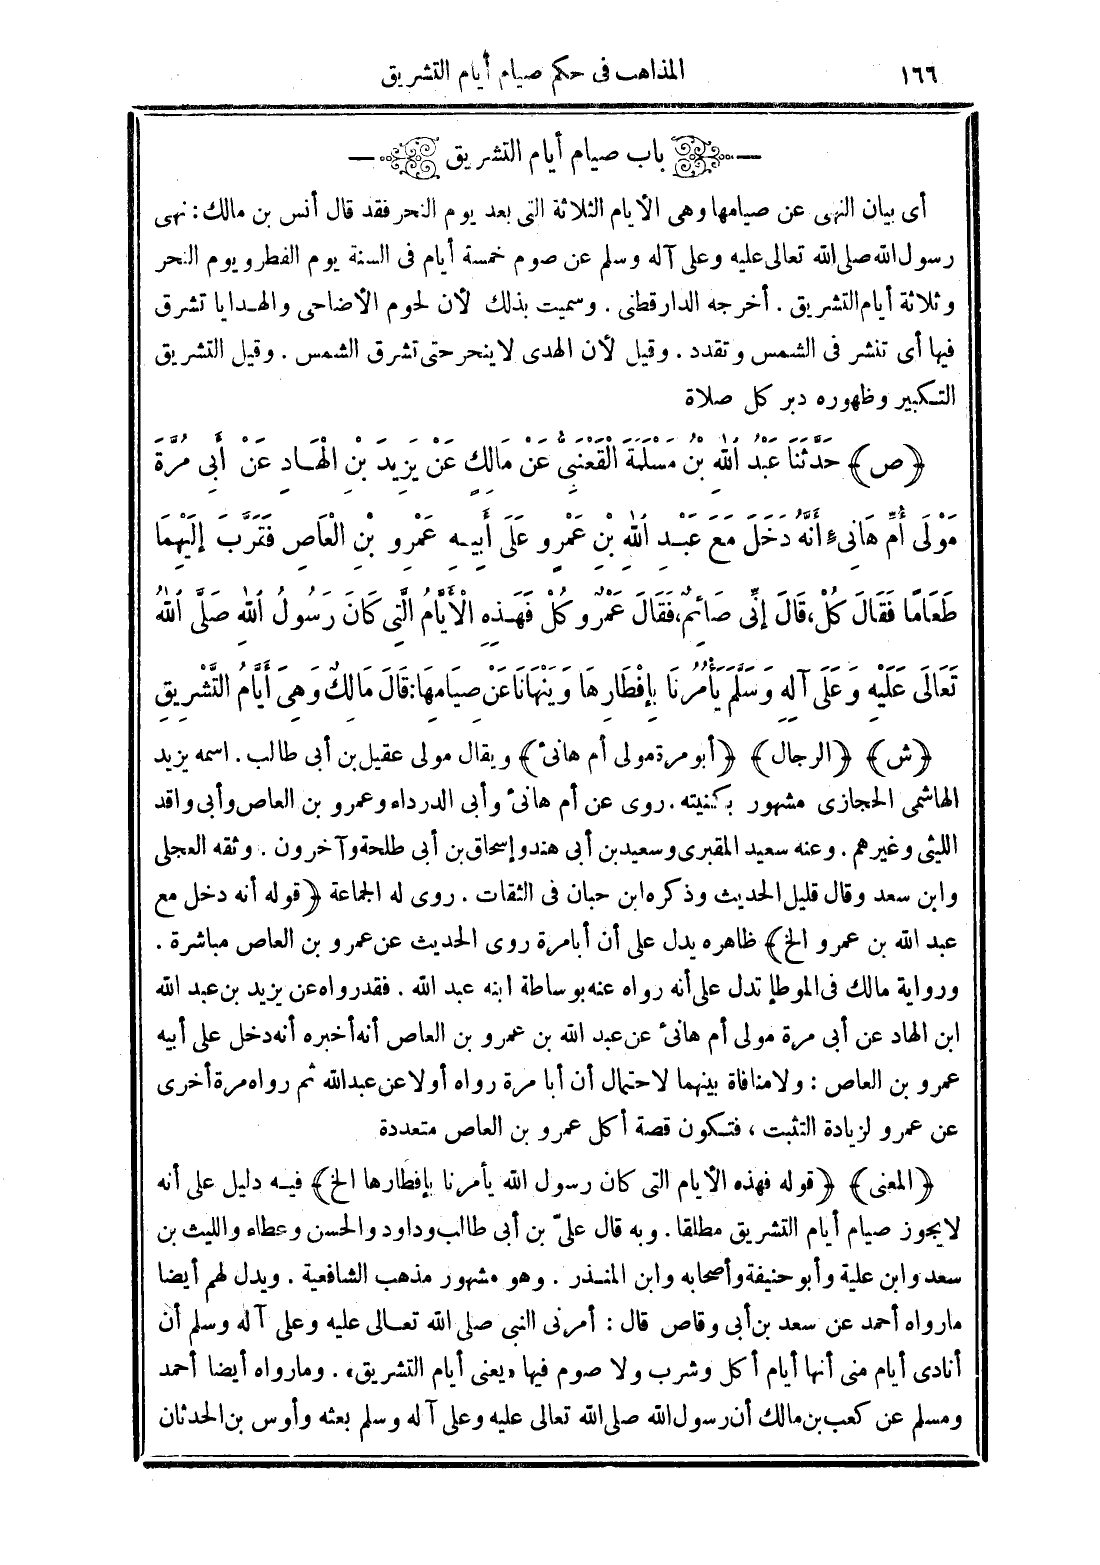 ١٦٦ المذاهب فى حكم صيام أيام التشريق
باب صيام أيام التشريق
أى بيان النهى عن صيامها وهى الأيام الثلاثة التى بعد يوم النحر فقد قال أنس بن مالك: نهى
رسول الله صلى الله تعالى عليه وعلى آله وسلم عن صوم خمسة أيام فى السنة يوم الفطر ويوم النحر
وثلاثة أيام التشريق. أخرجه الدارقطنى. وسميت بذلك لأن لحوم الأضاحى والهدايا تشرق
فيها أى تنشر فى الشمس وتقدد. وقيل لأن الهدى لا ينحر حتى تشرق الشمس. وقيل التشريق
التكبير وظهوره دبر كل صلاة
﴿ص﴾ حَدَّثَنَا عَبْدُ اللهِ بْنُ مَسْلَمَةَ الْقَعْنَبِىُّ عَنْ مَالِكٍ عَنْ يَزِيدَ بْنِ الْهَادِ عَنْ أَبِى مُرَّةَ
مَوْلَى أُمِّ هَانِىءٍ أَنَّهُ دَخَلَ مَعَ عَبْدِ اللهِ بْنِ عَمْرٍو عَلَى أَبِيهِ عَمْرِو بْنِ الْعَاصِ فَقَرَّبَ إِلَيْهِمَا
طَعَامًا فَقَالَ كُلْ، قَالَ إِنِّى صَائِمٌ، فَقَالَ عَمْرٌو كُلْ فَهَذِهِ الْأَيَّامُ الَّتِى كَانَ رَسُولُ اللهِ صَلَّى اللهُ
تَعَالَى عَلَيْهِ وَعَلَى آلِهِ وَسَلَّمَ يَأْمُرُنَا بِإِفْطَارِهَا وَيَنْهَانَا عَنْ صِيَامِهَا: قَالَ مَالِكٌ وَهِىَ أَيَّامُ التَّشْرِيقِ
﴿ش﴾ ﴿الرجال﴾ ﴿أبو مرة مولى أم هانئ﴾ ويقال مولى عقيل بن أبى طالب. اسمه يزيد
الهاشمى الحجازى مشهور بكنيته. روى عن أم هانئ وأبى الدرداء وعمرو بن العاص وأبى واقد
الليثى وغيرهم. وعنه سعيد المقبرى وسعيد بن أبى هند وإسحاق بن أبى طلحة وآخرون. وثقه العجلى
وابن سعد وقال قليل الحديث وذكره ابن حبان فى الثقات. روى له الجماعة ﴿قوله أنه دخل مع
عبد الله بن عمرو الخ﴾ ظاهره يدل على أن أبا مرة روى الحديث عن عمرو بن العاص مباشرة.
ورواية مالك فى الموطإ تدل على أنه رواه عنه بوساطة ابنه عبد الله. فقد رواه عن يزيد بن عبد الله
ابن الهاد عن أبى مرة مولى أم هانئ عن عبد الله بن عمرو بن العاص أنه أخبره أنه دخل على أبيه
عمرو بن العاص: ولا منافاة بينهما لاحتمال أن أبا مرة رواه أولا عن عبد الله ثم رواه مرة أخرى
عن عمرو لزيادة التثبت، فتكون قصة أكل عمرو بن العاص متعددة
﴿المعنى﴾ ﴿قوله فهذه الأيام التى كان رسول الله يأمرنا بإفطارها الخ﴾ فيه دليل على أنه
لا يجوز صيام أيام التشريق مطلقا. وبه قال علىّ بن أبى طالب وداود والحسن وعطاء والليث بن
سعد وابن علية وأبو حنيفة وأصحابه وابن المنذر. وهو مشهور مذهب الشافعية. ويدل لهم أيضا
مارواه أحمد عن سعد بن أبى وقاص قال: أمرنى النبى صلى الله تعالى عليه وعلى آله وسلم أن
أنادى أيام منى أنها أيام أكل وشرب ولا صوم فيها «يعنى أيام التشريق». ومارواه أيضا أحمد
ومسلم عن كعب بن مالك أن رسول الله صلى الله تعالى عليه وعلى آله وسلم بعثه وأوس بن الحدثان